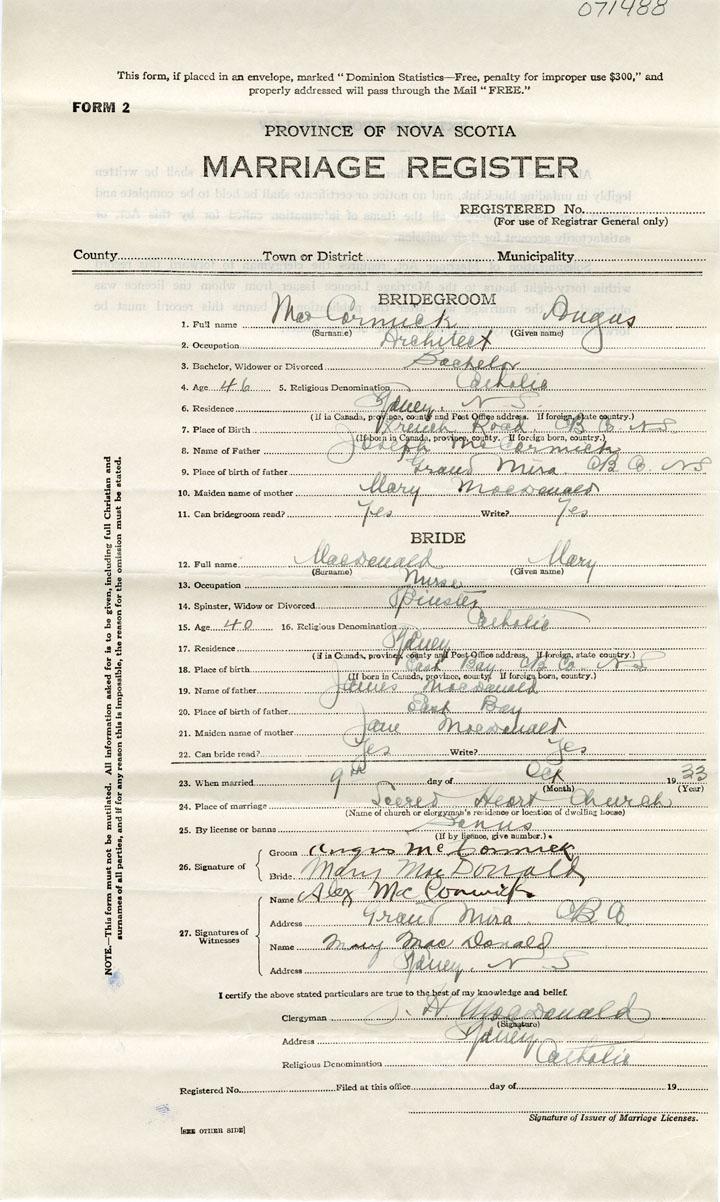 071488
This form, if placed in an envelope, marked "Dominion Statistics—Free, penalty for improper use $300," and
properly addressed will pass through the Mail "FREE."
FORM 2
PROVINCE OF NOVA SCOTIA
MARRIAGE REGISTER
REGISTERED No.
(For use of Registrar General only)
County Town or District Municipality
BRIDEGROOM
1. Full name MacCormick Angus
(Surname) (Given name)
2. Occupation Architect
3. Bachelor, Widower or Divorced Bachelor
4. Age 46 5. Religious Denomination Catholic
6. Residence Sydney, N S
(If in Canada, province, county and Post Office address. If foreign, state country.)
7. Place of Birth French Road C. B. Co. N S
(If born in Canada, province, county. If foreign born, country.)
8. Name of Father Joseph McCormick
9. Place of birth of father Grand Mira C B Co. N S
10. Maiden name of mother Mary Macdonald
11. Can bridegroom read? Yes Write? Yes
BRIDE
12. Full name Macdonald Mary
(Surname) (Given name)
13. Occupation Nurse
14. Spinster, Widow or Divorced Spinster
15. Age 40 16. Religious Denomination Catholic
17. Residence Sydney
(If in Canada, province, county and Post Office address. If foreign, state country.)
18. Place of birth East Bay C B Co. N S
(If born in Canada, province, county. If foreign born, country.)
19. Name of father James Macdonald
20. Place of birth of father East Bay
21. Maiden name of mother Jane Macdonald
22. Can bride read? Yes Write? Yes
23. When married 9th day of Oct 1933
(Month) (Year)
24. Place of marriage Sacred Heart Church
(Name of church or clergyman's residence or location of dwelling house)
25. By license or banns Banns
(If by licence, give number.)
26. Signature of Groom Angus McCormick
Bride Mary MacDonald
27. Signatures of Witnesses Name Alex MacCormick
Address Grand Mira C B Co
Name Mary MacDonald
Address Sydney, N S
I certify the above stated particulars are true to the best of my knowledge and belief.
Clergyman J. H. Macdonald
(Signature)
Address Sydney
Religious Denomination Catholic
Registered No. Filed at this office day of 19
Signature of Issuer of Marriage Licenses.
[SEE OTHER SIDE]
NOTE.—This form must not be mutilated. All information asked for is to be given, including full Christian and
surnames of all parties, and if for any reason this is impossible, the reason for the omission must be stated.